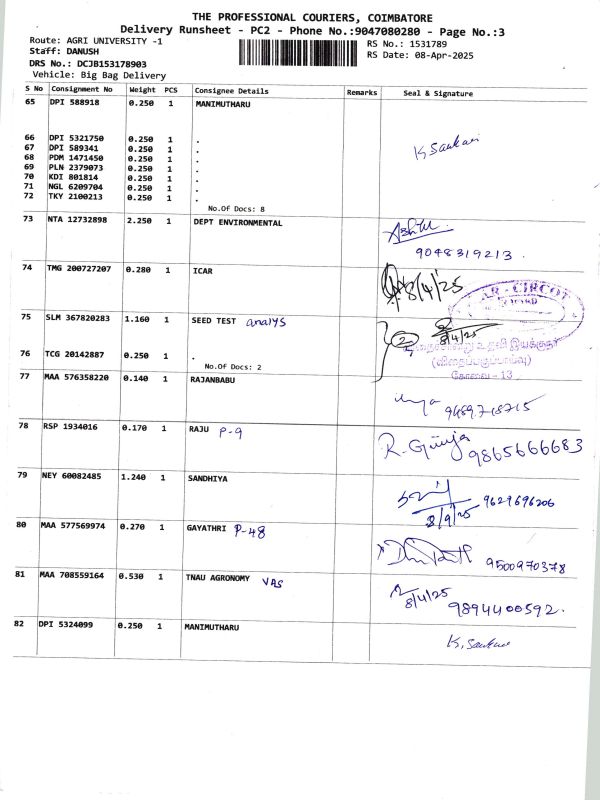 THE PROFESSIONAL COURIERS, COIMBATORE
Delivery Runsheet - PC2 - Phone No.:9047080280 - Page No.:3
Route: AGRI UNIVERSITY -1
RS No.: 1531789
Staff: DANUSH
RS Date: 08-Apr-2025
DRS No.: DCJB153178903
Vehicle: Big Bag Delivery
S No Consignment No Weight PCS Consignee Details Remarks Seal & Signature
65 DPI 588918 0.250 1 MANIMUTHARU
66 DPI 5321750 0.250 1 .
67 DPI 589341 0.250 1 .
68 PDM 1471450 0.250 1 .
69 PLN 2379073 0.250 1 .
70 KDI 801814 0.250 1 .
71 NGL 6209704 0.250 1 .
72 TKY 2100213 0.250 1 .
No.Of Docs: 8
K. Sankari
73 NTA 12732898 2.250 1 DEPT ENVIRONMENTAL
9048319213.
74 TMG 200727207 0.280 1 ICAR
8/4/25
75 SLM 367820283 1.160 1 SEED TEST analys
2
8/4/25
76 TCG 20142887 0.250 1 .
No.Of Docs: 2
கோவை - 13
77 MAA 576358220 0.140 1 RAJANBABU
9489718715
78 RSP 1934016 0.170 1 RAJU P-9
R. Günja 9865666683
79 NEY 60082485 1.240 1 SANDHIYA
9629696206
8/9/25
80 MAA 577569974 0.270 1 GAYATHRI P-48
9500970378
81 MAA 708559164 0.530 1 TNAU AGRONOMY VAS
8/4/25 9894400592.
82 DPI 5324099 0.250 1 MANIMUTHARU
K. Sankari